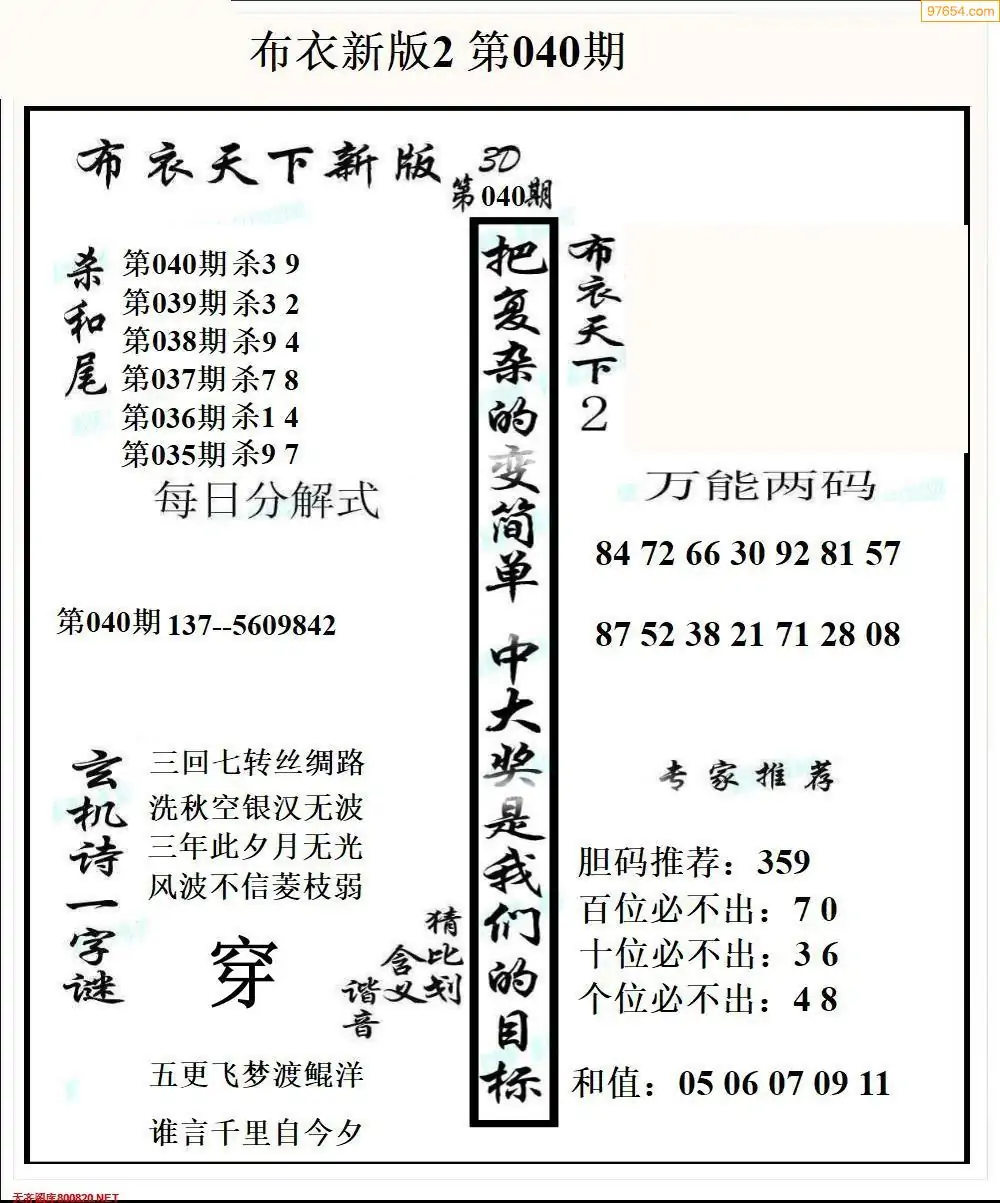 97654.com
布衣新版2 第040期
布衣天下新版
3D
第040期
杀和尾
第040期 杀3 9
第039期 杀3 2
第038期 杀9 4
第037期 杀7 8
第036期 杀1 4
第035期 杀9 7
每日分解式
第040期 137--5609842
玄机诗一字谜
三回七转丝绸路
洗秋空银汉无波
三年此夕月无光
风波不信菱枝弱
穿
猜比划
含义
谐音
五更飞梦渡鲲洋
谁言千里自今夕
把复杂的变简单 中大奖是我们的目标
布衣天下2
万能两码
84 72 66 30 92 81 57
87 52 38 21 71 28 08
专家推荐
胆码推荐：359
百位必不出：7 0
十位必不出：3 6
个位必不出：4 8
和值：05 06 07 09 11
天齐图库800820.NET